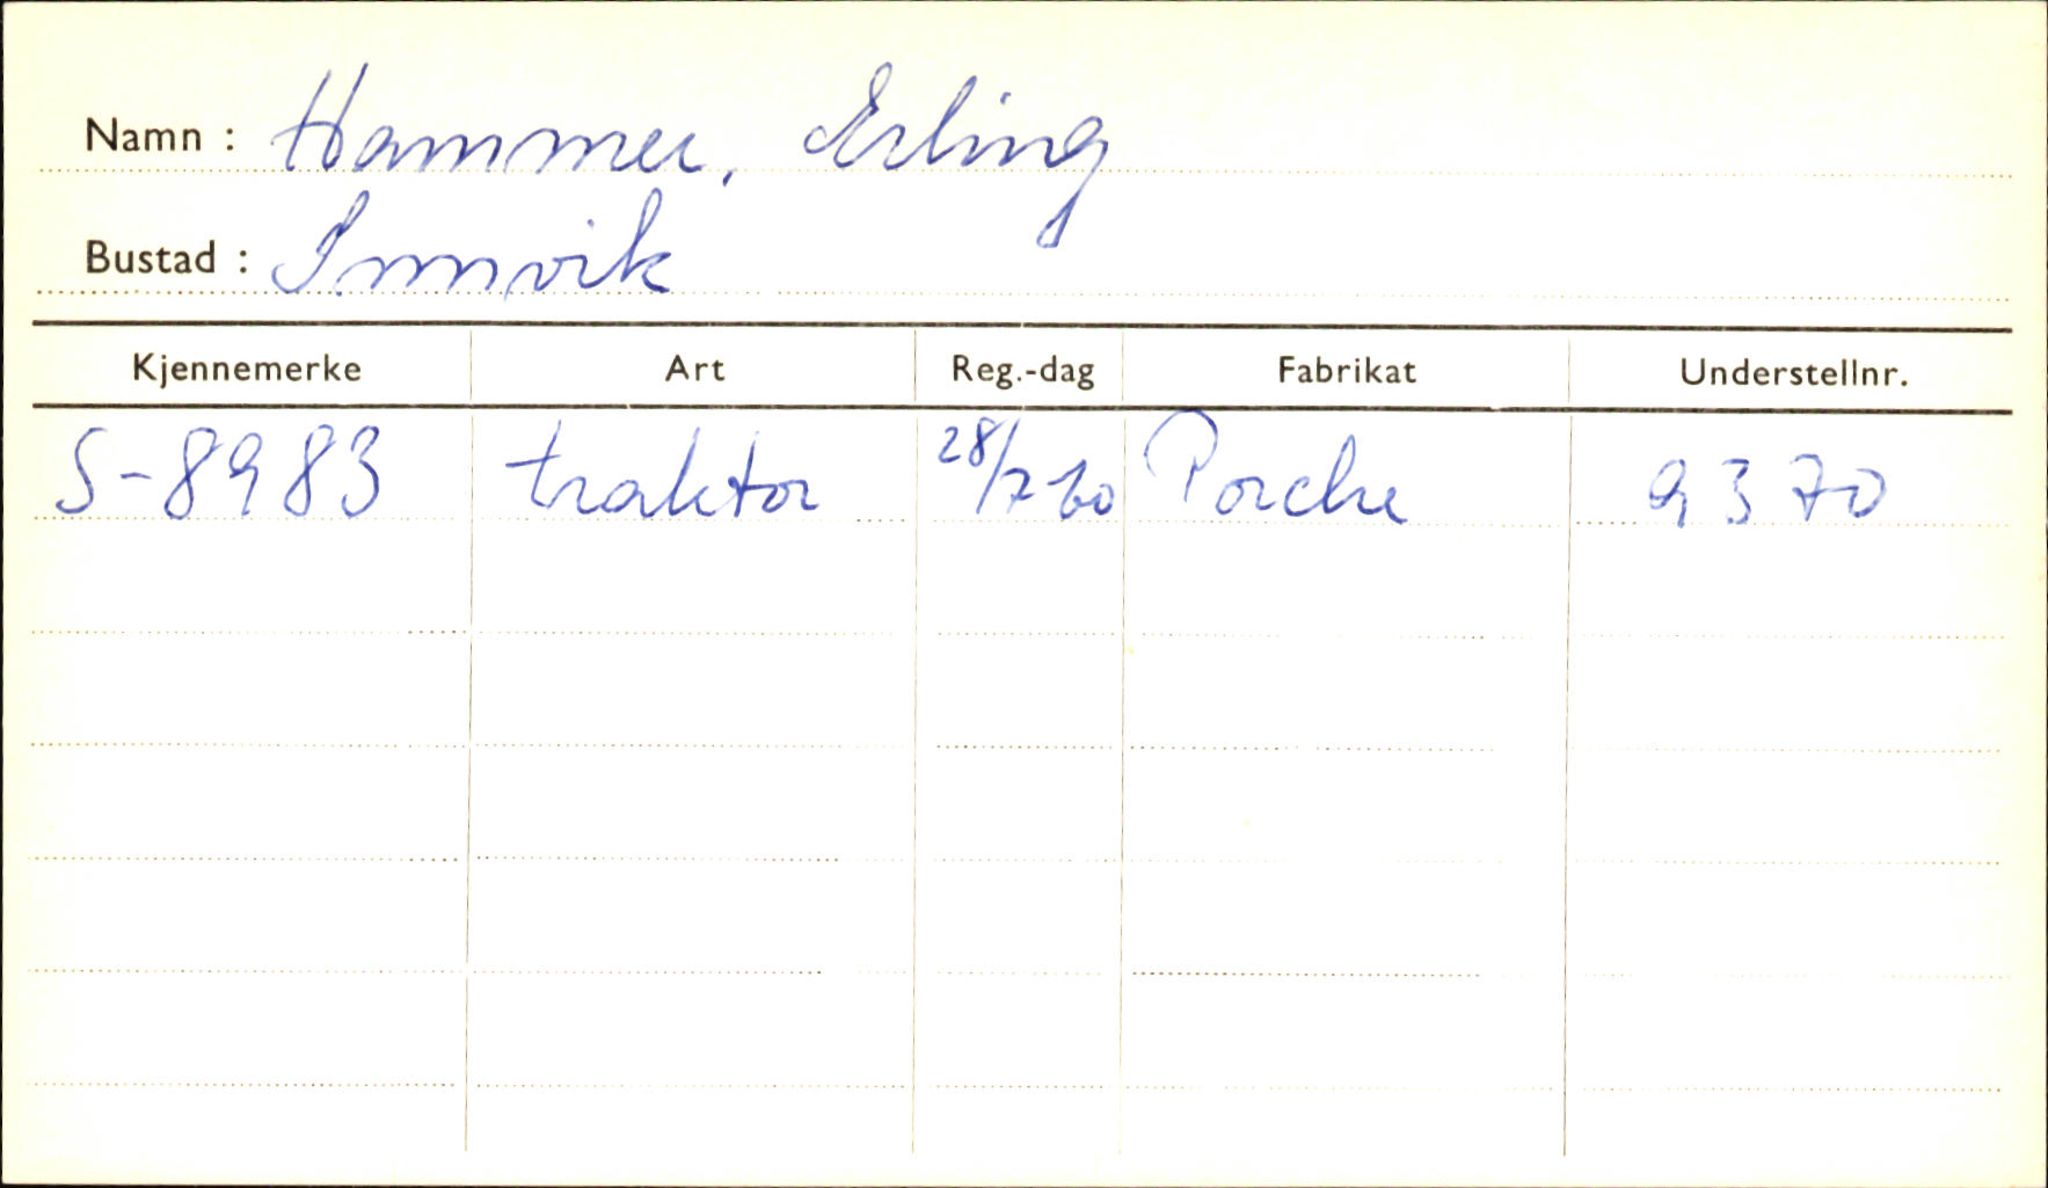 Namn : Hammer, Erling
Bustad : Innvik
Kjennemerke Art Reg.-dag Fabrikat Understellnr.
S-8983 traktor 28/7 60 Porche 9370